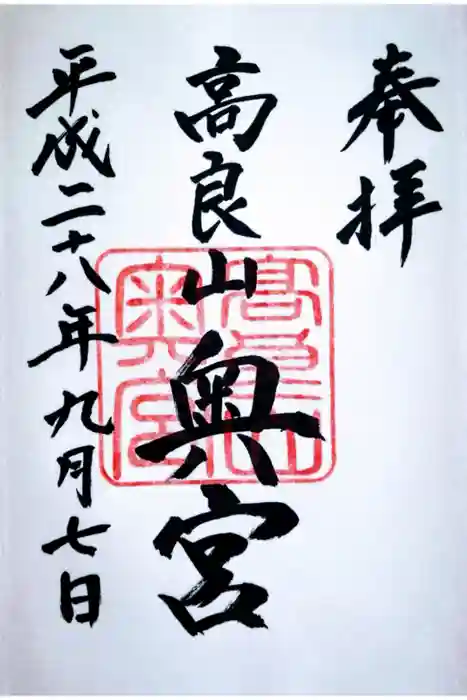 奉拝
高良山奥宮
平成二十八年九月七日
高良山
奥宮